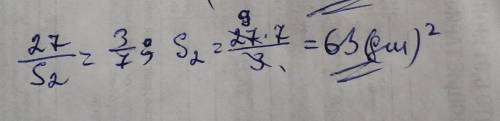 27/S2 = 3/7; S2 = 27·7/3 = 63(см)²